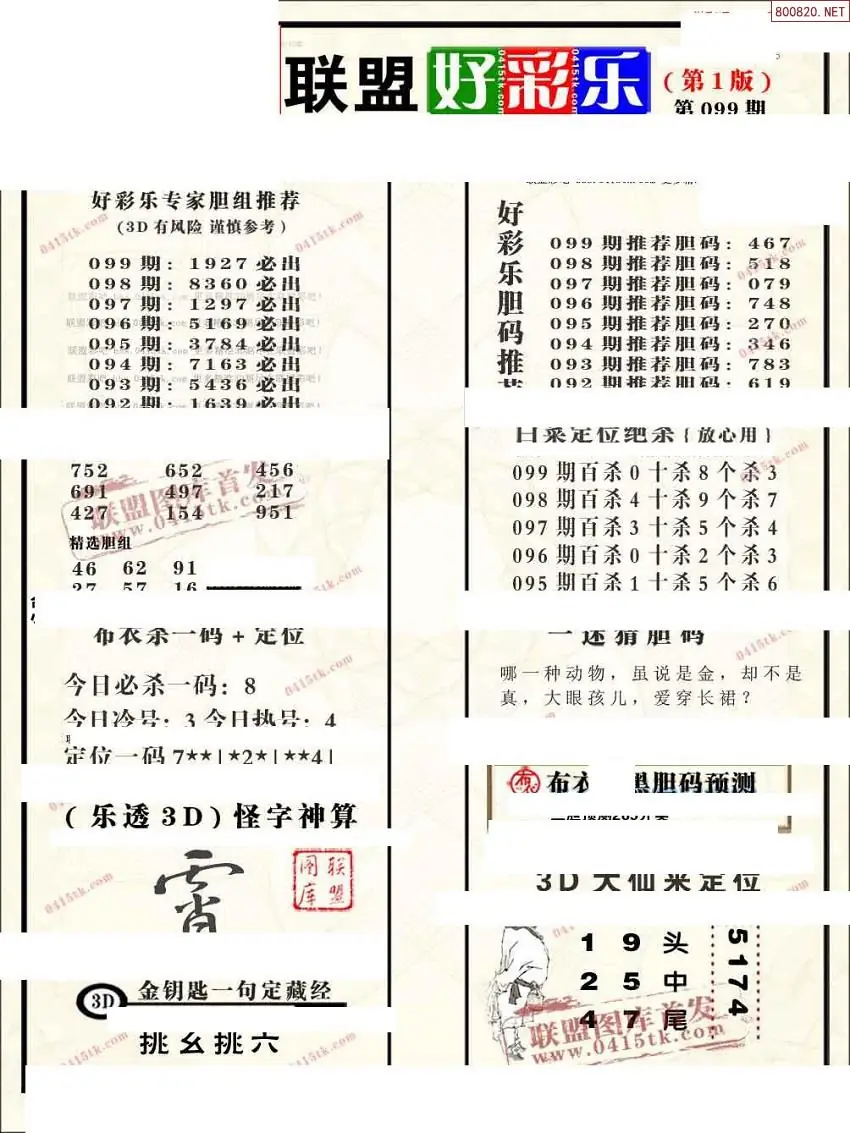 800820.NET
联盟 好彩乐 (第1版)
第 099 期
好彩乐专家胆组推荐
(3D 有风险 谨慎参考)
099 期: 1927 必出
098 期: 8360 必出
097 期: 1297 必出
096 期: 5169 必出
095 期: 3784 必出
094 期: 7163 必出
093 期: 5436 必出
092 期: 1639 必出
752 652 456
691 497 217
427 154 951
联盟图库首发
www.0415tk.com
精选胆组
46 62 91
27 57 16
布衣杀一码 + 定位
今日必杀一码: 8
今日冷号: 3 今日热号: 4
定位一码 7★★|★2★|★★4|
(乐透3D) 怪字神算
霄
联盟图库
3D 金钥匙一句定藏经
挑 幺 挑 六
好彩乐胆码推荐
099 期推荐胆码: 467
098 期推荐胆码: 518
097 期推荐胆码: 079
096 期推荐胆码: 748
095 期推荐胆码: 270
094 期推荐胆码: 346
093 期推荐胆码: 783
092 期推荐胆码: 619
白菜定位绝杀 { 放心用 }
099 期百杀 0 十杀 8 个杀 3
098 期百杀 4 十杀 9 个杀 7
097 期百杀 3 十杀 5 个杀 4
096 期百杀 0 十杀 2 个杀 3
095 期百杀 1 十杀 5 个杀 6
一迷猜胆码
哪一种动物，虽说是金，却不是
真，大眼孩儿，爱穿长裙？
布衣 黑胆码预测
3D 大仙来定位
1 9 头
2 5 中
4 7 尾
5174
联盟图库首发
www.0415tk.com